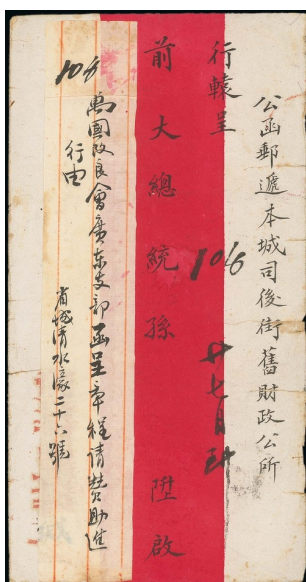 公函郵遞本城司後街舊財政公所
行轅呈
106
廿七日到
前大總統孫 陞啟
萬國改良會廣东支部函呈章程請贊助進
行由
省城清水濠二十六號
106